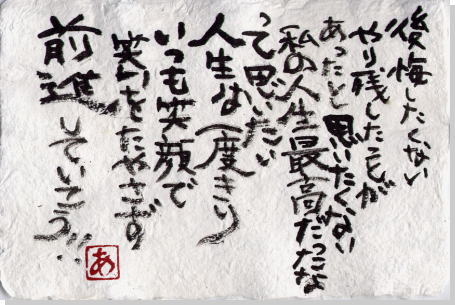 後悔したくない
やり残したことが
あったと思いたくない
私の人生最高だったな
って思いたい
人生は一度きり
いつも笑顔で
笑いをたやさず
前進していこう!!
あ